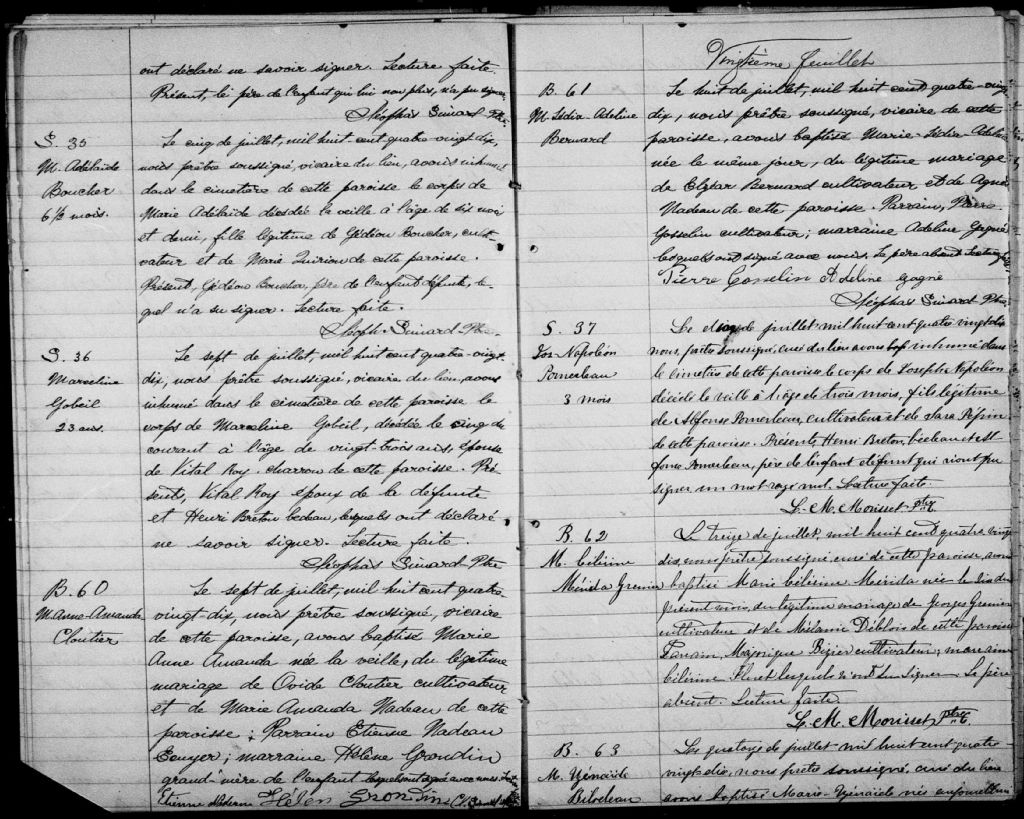 ont déclaré ne savoir signer. Lecture faite.
Présent, le père de l'enfant qui lui non plus, n'a pu signer
Ptre
S. 35
M. Adélaïde
Boucher
6 1/2 mois.
Le cinq de juillet, mil huit-cent-quatre-vingt dix,
nous prêtre soussigné, vicaire du lieu, avons inhumé
dans le cimetière de cette paroisse le corps de
Marie Adélaïde décédée la veille à l'âge de six mois
et demi, fille légitime de Gédéon Boucher, culti-
vateur et de Marie Quirion de cette paroisse.
Présent, Gédéon Boucher, père de l'enfant défunte, le-
quel n'a su signer. Lecture faite.
Ptre
S. 36
Marceline
Gobeil
23 ans.
Le sept de juillet, mil huit cent quatre-vingt-
dix, nous prêtre soussigné, vicaire du lieu, avons
inhumé dans le cimetière de cette paroisse le
corps de Marceline Gobeil, décédée le cinq du
courant à l'âge de vingt-trois ans, épouse
de Vital Roy charron de cette paroisse. Pré-
sents, Vital Roy époux de la défunte
et Henri Breton bedeau, lesquels ont déclaré
ne savoir signer. Lecture faite.
Ptre
B. 60
M. Anne-Amanda
Cloutier
Le sept de juillet, mil huit cent quatre-
vingt-dix, nous prêtre soussigné, vicaire
de cette paroisse, avons baptisé Marie
Anne Amanda née la veille, du légitime
mariage de Ovide Cloutier cultivateur
et de Marie Amanda Nadeau de cette
paroisse; Parrain Etienne Nadeau
marraine Hélène Grondin
grand-mère de l'enfant lesquels ont signé avec nous
Etienne Hélen Grondin
Vingtième feuillet
B. 61
M. Lédia Adeline
Bernard
Le huit de juillet, mil huit cent quatre-vingt
dix, nous prêtre soussigné, vicaire de cette
paroisse, avons baptisé Marie-Lédia-Adeline
née le même jour, du légitime mariage
de Elzéar Bernard cultivateur et de Agnès
Nadeau de cette paroisse. Parrain, Pierre
Gosselin cultivateur; marraine Adeline Gagné
lesquels ont signé avec nous. Le père absent
Pierre Gosselin Adeline Gagné
Ptre
S. 37
Jos-Napoléon
Pomerleau
3 mois
Le de juillet mil huit cent quatre vingt dix
nous, prêtre soussigné, curé du lieu avons inhumé dans
le cimetière de cette paroisse le corps de Joseph Napoléon
décédé la veille à l'âge de trois mois, fils légitime
de Alfonse Pomerleau, cultivateur et de Pépin
de cette paroisse. Présents, Henri Breton, bedeau et Al-
fonse Pomerleau, père de l'enfant défunt qui n'ont pu
signer, un mot rayé nul. Lecture faite.
L. M. Morisset Ptre
B. 62
M. Célérine
Mérida Grenier
Le treize de juillet, mil huit cent quatre vingt
dix, nous prêtre soussigné, curé de cette paroisse, avons
baptisé Marie Célérine Mérida née le dix du
présent mois, du légitime mariage de Georges Grenier
cultivateur et de Mélanie Diblois de cette paroisse
Parrain, cultivateur; marraine
Célérine lesquels n'ont su signer. Le père
absent. Lecture faite.
L. M. Morisset Ptre
B. 63
M. Zénaïde
Bilodeau
Le quatorze de juillet mil huit cent quatre-
vingt-dix, nous prêtre soussigné, curé du lieu
avons baptisé Marie-Zénaïde née aujourd'hui